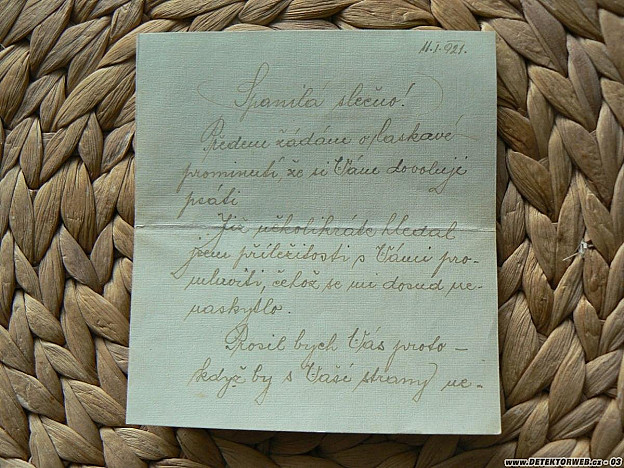 11.I.921.
Spanilá slečno!
Předem žádám o laskavé
prominutí, že si Vám dovoluji
psáti.
Již několikráte hledal
jsem příležitosti s Vámi pro-
mluviti, čehož se mi dosud ne-
naskytlo.
Prosil bych Vás proto –
když by s Vaší strany ne-
www.DETEKTORWEB.cz - 03